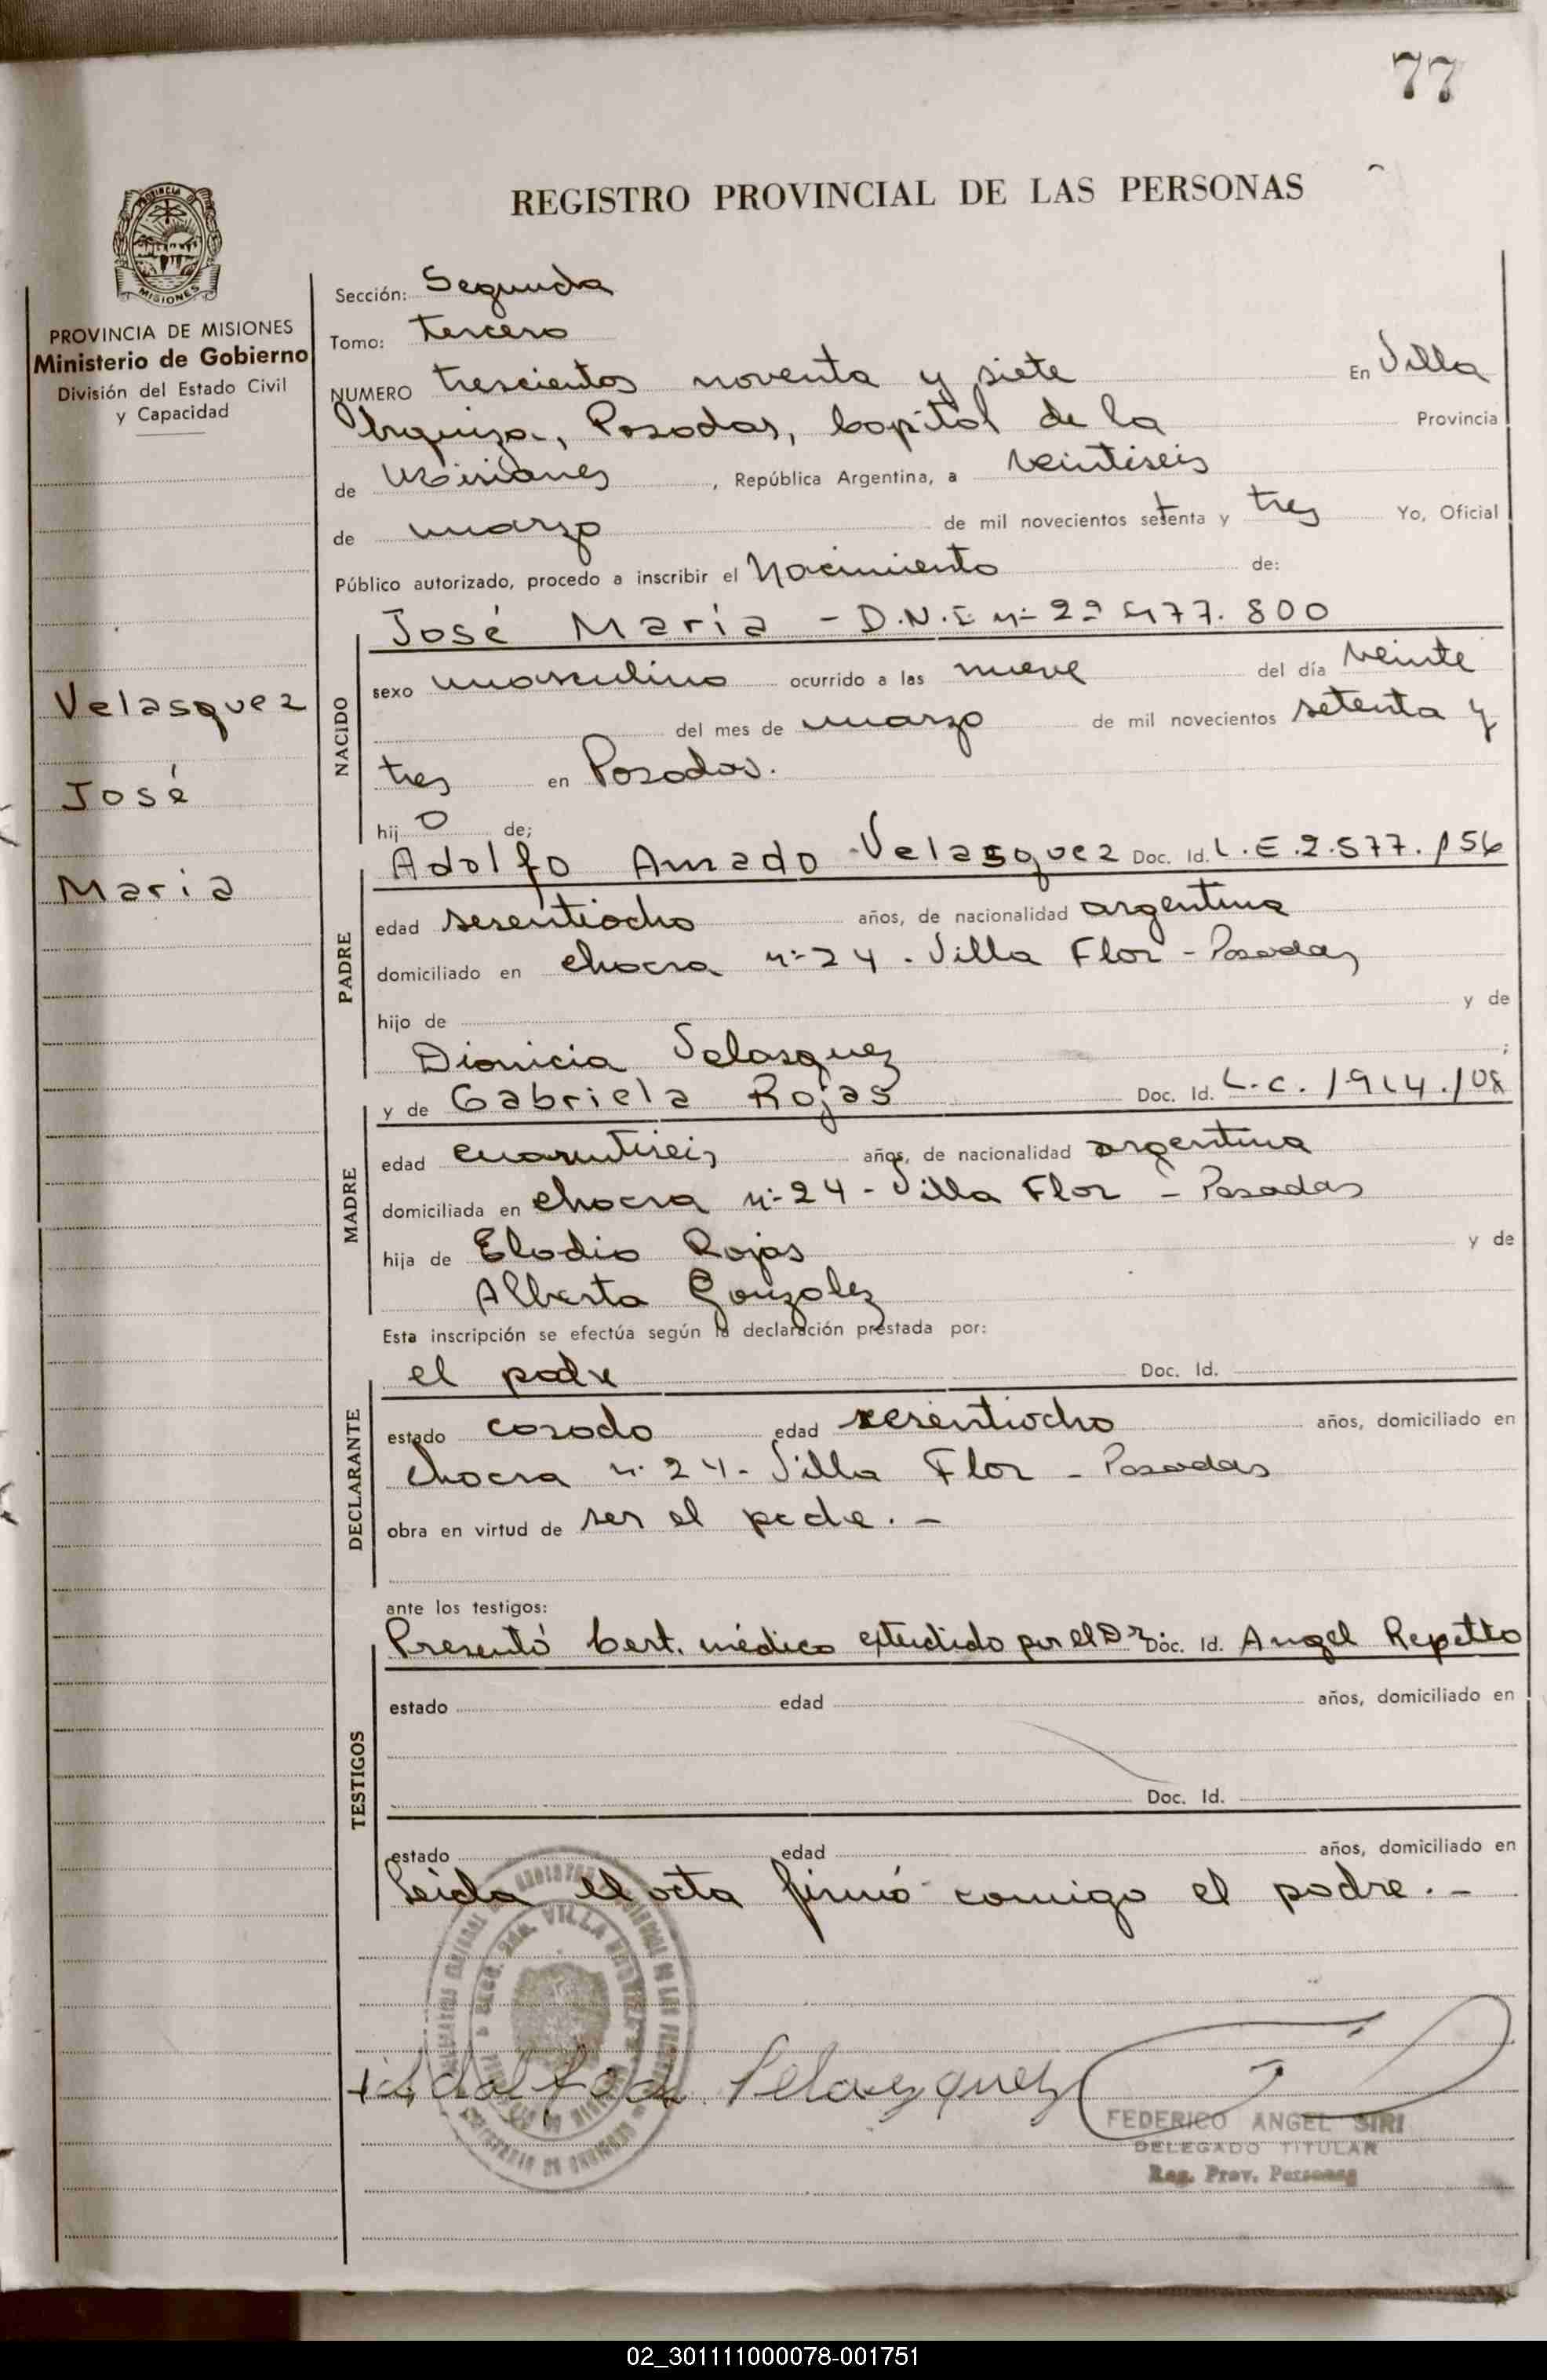 77
REGISTRO PROVINCIAL DE LAS PERSONAS
PROVINCIA
MISIONES
PROVINCIA DE MISIONES
Ministerio de Gobierno
División del Estado Civil
y Capacidad
Velasquez
José
Maria
Sección: Segunda
Tomo: tercero
NUMERO trescientos noventa y siete En Villa
Urquiza, Posadas, Capital de la Provincia
de Misiones, República Argentina, a veintiseis
de marzo de mil novecientos setenta y tres Yo, Oficial
Público autorizado, procedo a inscribir el Nacimiento de:
José María - D.N.I nº 477.800
NACIDO
sexo masculino ocurrido a las nueve del día veinte
del mes de marzo de mil novecientos setenta y
tres en Posadas.
hijo de;
Adolfo Amado Velasquez Doc. Id. L.E.2.577.156
PADRE
edad sesentiocho años, de nacionalidad argentina
domiciliado en chacra nº 24 - Villa Flor - Posadas
hijo de y de
Dionicia Velasquez ;
y de Gabriela Rojas Doc. Id. L.C. 1.914.108
MADRE
edad cuarentiseis años, de nacionalidad argentina
domiciliada en chacra nº 24 - Villa Flor - Posadas
hija de Elodio Rojas y de
Alberta Gonzalez
Esta inscripción se efectúa según la declaración prestada por:
el padre Doc. Id.
DECLARANTE
estado casado edad sesentiocho años, domiciliado en
chacra nº 24 - Villa Flor - Posadas
obra en virtud de ser el padre. -
ante los testigos:
Presentó Cert. médico extendido por el Dr. Doc. Id. Angel Repetto
TESTIGOS
estado edad años, domiciliado en
Doc. Id.
estado edad años, domiciliado en
Leida el acta firmó conmigo el padre. -
VILLA
Velazquez
FEDERICO ANGEL SIRI
DELEGADO TITULAR
Reg. Prov. Personas
02_301111000078-001751